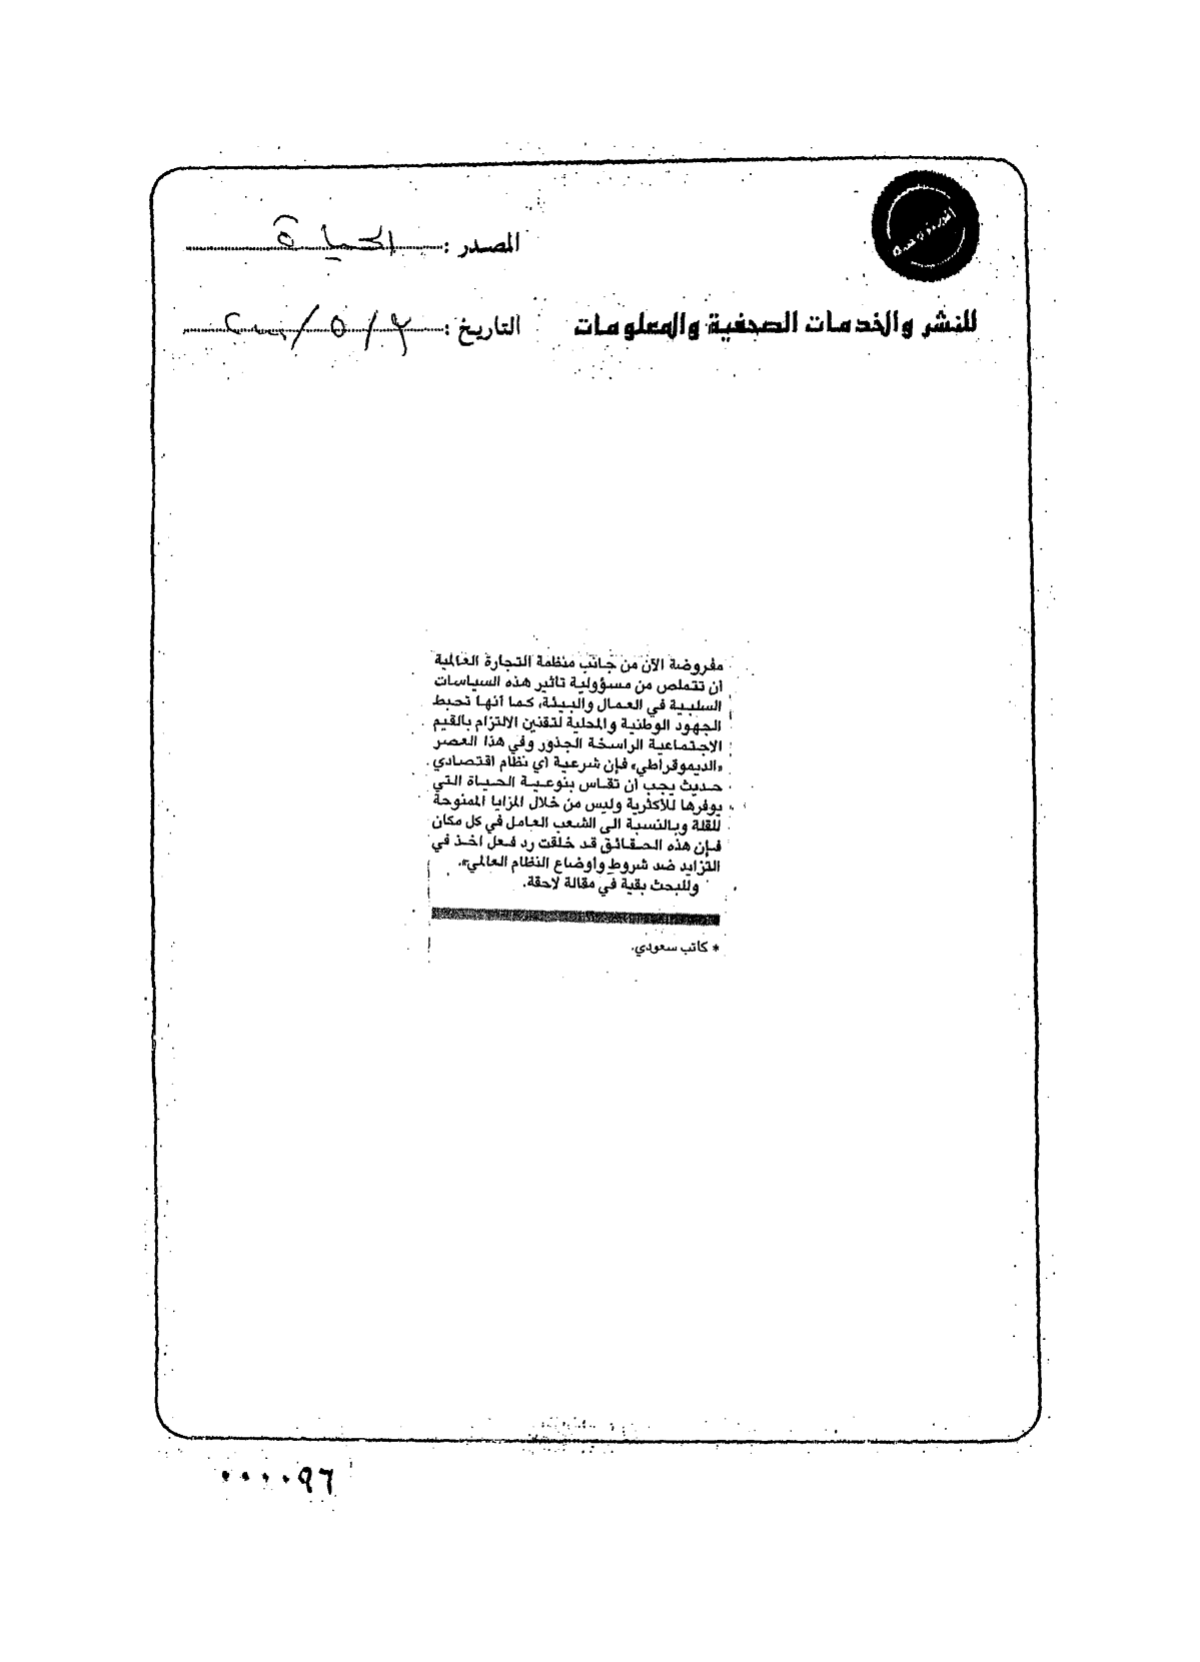 المصدر : الحياة
للنشر والخدمات الصحفية والمعلومات
التاريخ :
مفروضة الآن من جانب منظمة التجارة العالمية
أن تتملص من مسؤولية تاثير هذه السياسات
السلبية في العمال والبيئة، كما أنها تحبط
الجهود الوطنية والمحلية لتقنين الالتزام بالقيم
الاجتماعية الراسخة الجذور وفي هذا العصر
«الديموقراطي» فإن شرعية أي نظام اقتصادي
حديث يجب أن تقاس بنوعية الحياة التي
يوفرها للأكثرية وليس من خلال المزايا الممنوحة
للقلة وبالنسبة الى الشعب العامل في كل مكان
فإن هذه الحقائق قد خلقت رد فعل اخذ في
التزايد ضد شروط وأوضاع النظام العالمي».
وللبحث بقية في مقالة لاحقة.
* كاتب سعودي.
٠٠٠٠٩٦